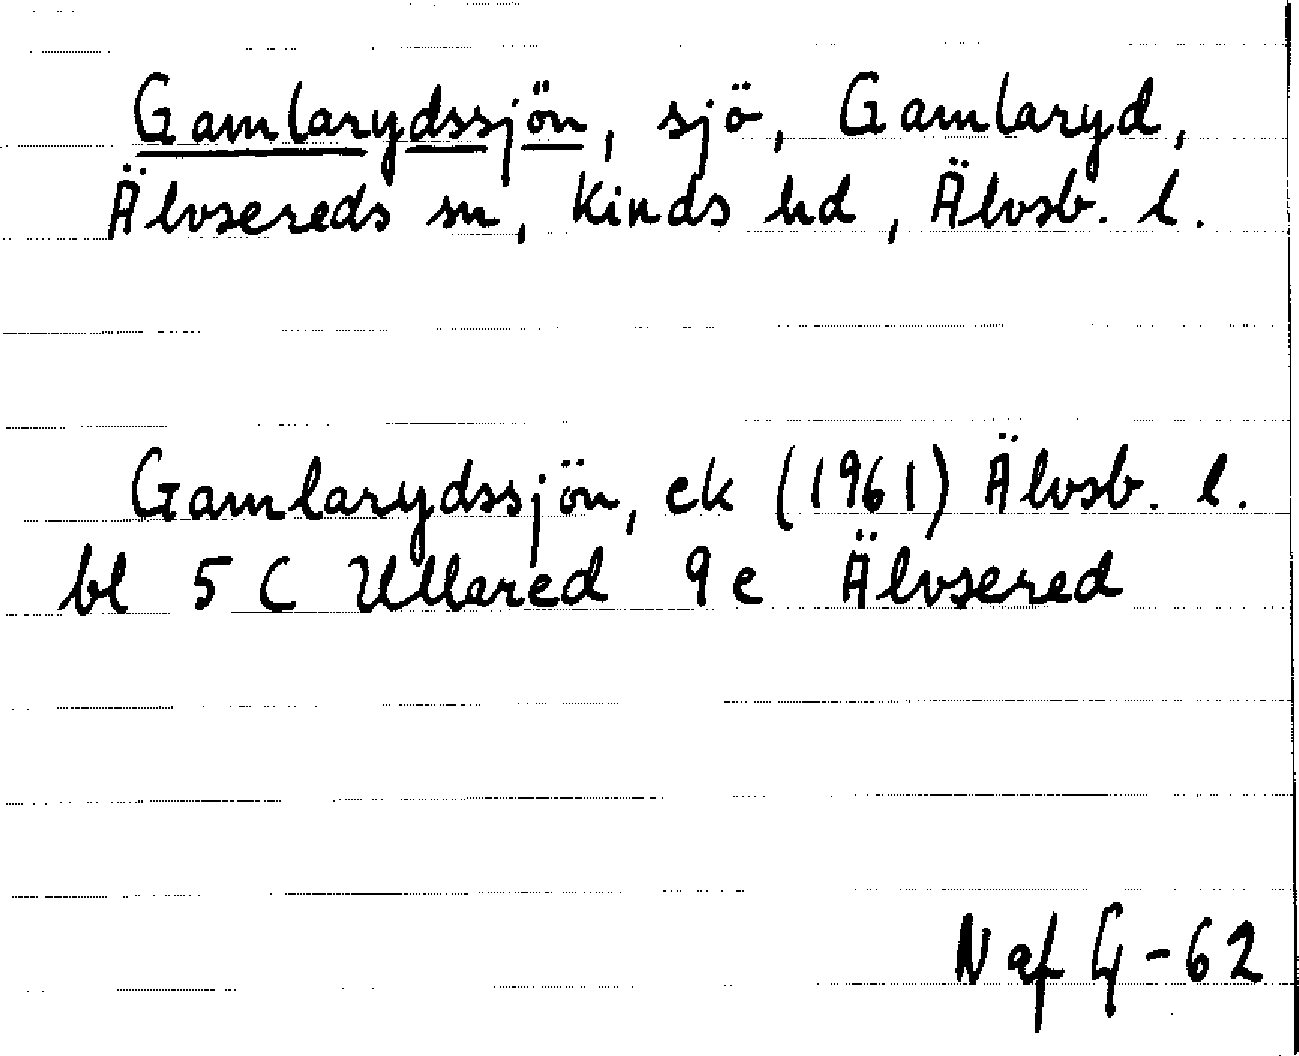 Gamlarydssjön, sjö, Gamlaryd,
Älvsereds sn, Kinds hd, Älvsb. l.
Gamlarydssjön, ek (1961) Älvsb. l.
bl 5 C Ullared 9 e Älvsered
N af G-62